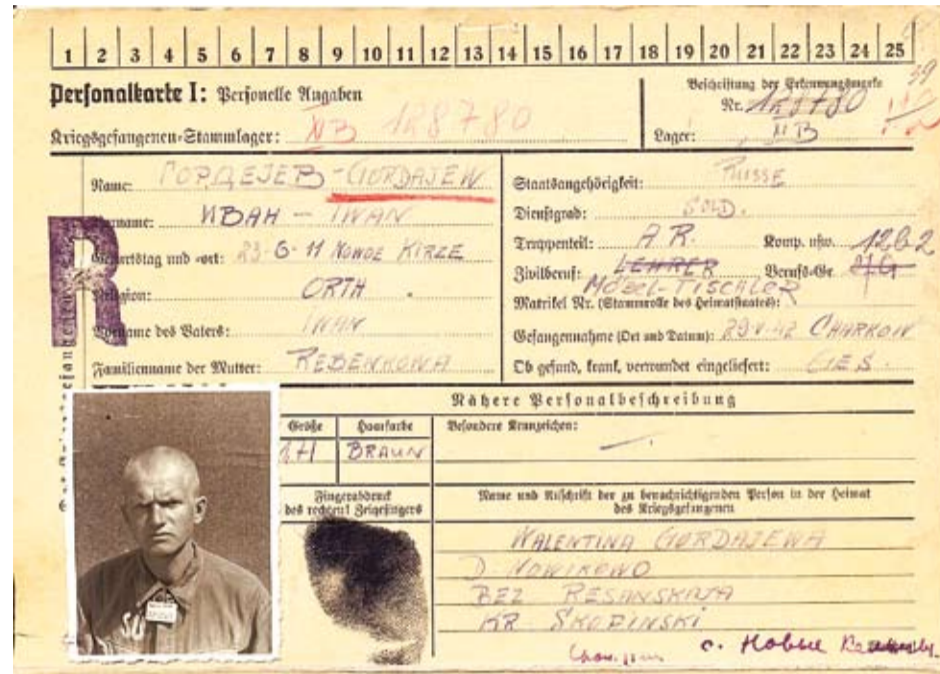 1 2 3 4 5 6 7 8 9 10 11 12 13 14 15 16 17 18 19 20 21 22 23 24 25
Personalkarte I: Personelle Angaben
Kriegsgefangenen-Stammlager: XI B 128780
Beschriftung der Erkennungsmarke
Nr. 128780
Lager: XI B
39
Name: ГОРДЕЈЕВ - GORDAJEW
Vorname: ИВАН - IWAN
Geburtstag und -ort: 23-6-11 NOWOE KIRZE
Religion: ORTH.
Vorname des Vaters: IWAN
Familienname der Mutter: REBENKOWA
R
Staatsangehörigkeit: RUSSE
Dienstgrad: SOLD.
Truppenteil: A R. Komp. usw. 1262
Zivilberuf: LEHRER Berufs-Gr.
MÖBEL-TISCHLER
Matrikel Nr. (Stammrolle des Heimatstaates):
Gefangennahme (Ort und Datum): 29.V.42 CHARKOW
Ob gesund, krank, verwundet eingeliefert: GES.
Nähere Personalbeschreibung
Größe Haarfarbe Besondere Kennzeichen:
1,71 BRAUN —.
Fingerabdruck
des rechten Zeigefingers
Name und Anschrift der zu benachrichtigenden Person in der Heimat
des Kriegsgefangenen
WALENTINA GORDAJEWA
D. NOWIKOWO
BEZ RESANSKAJA
KR. SKOPINSKI
с. Новые